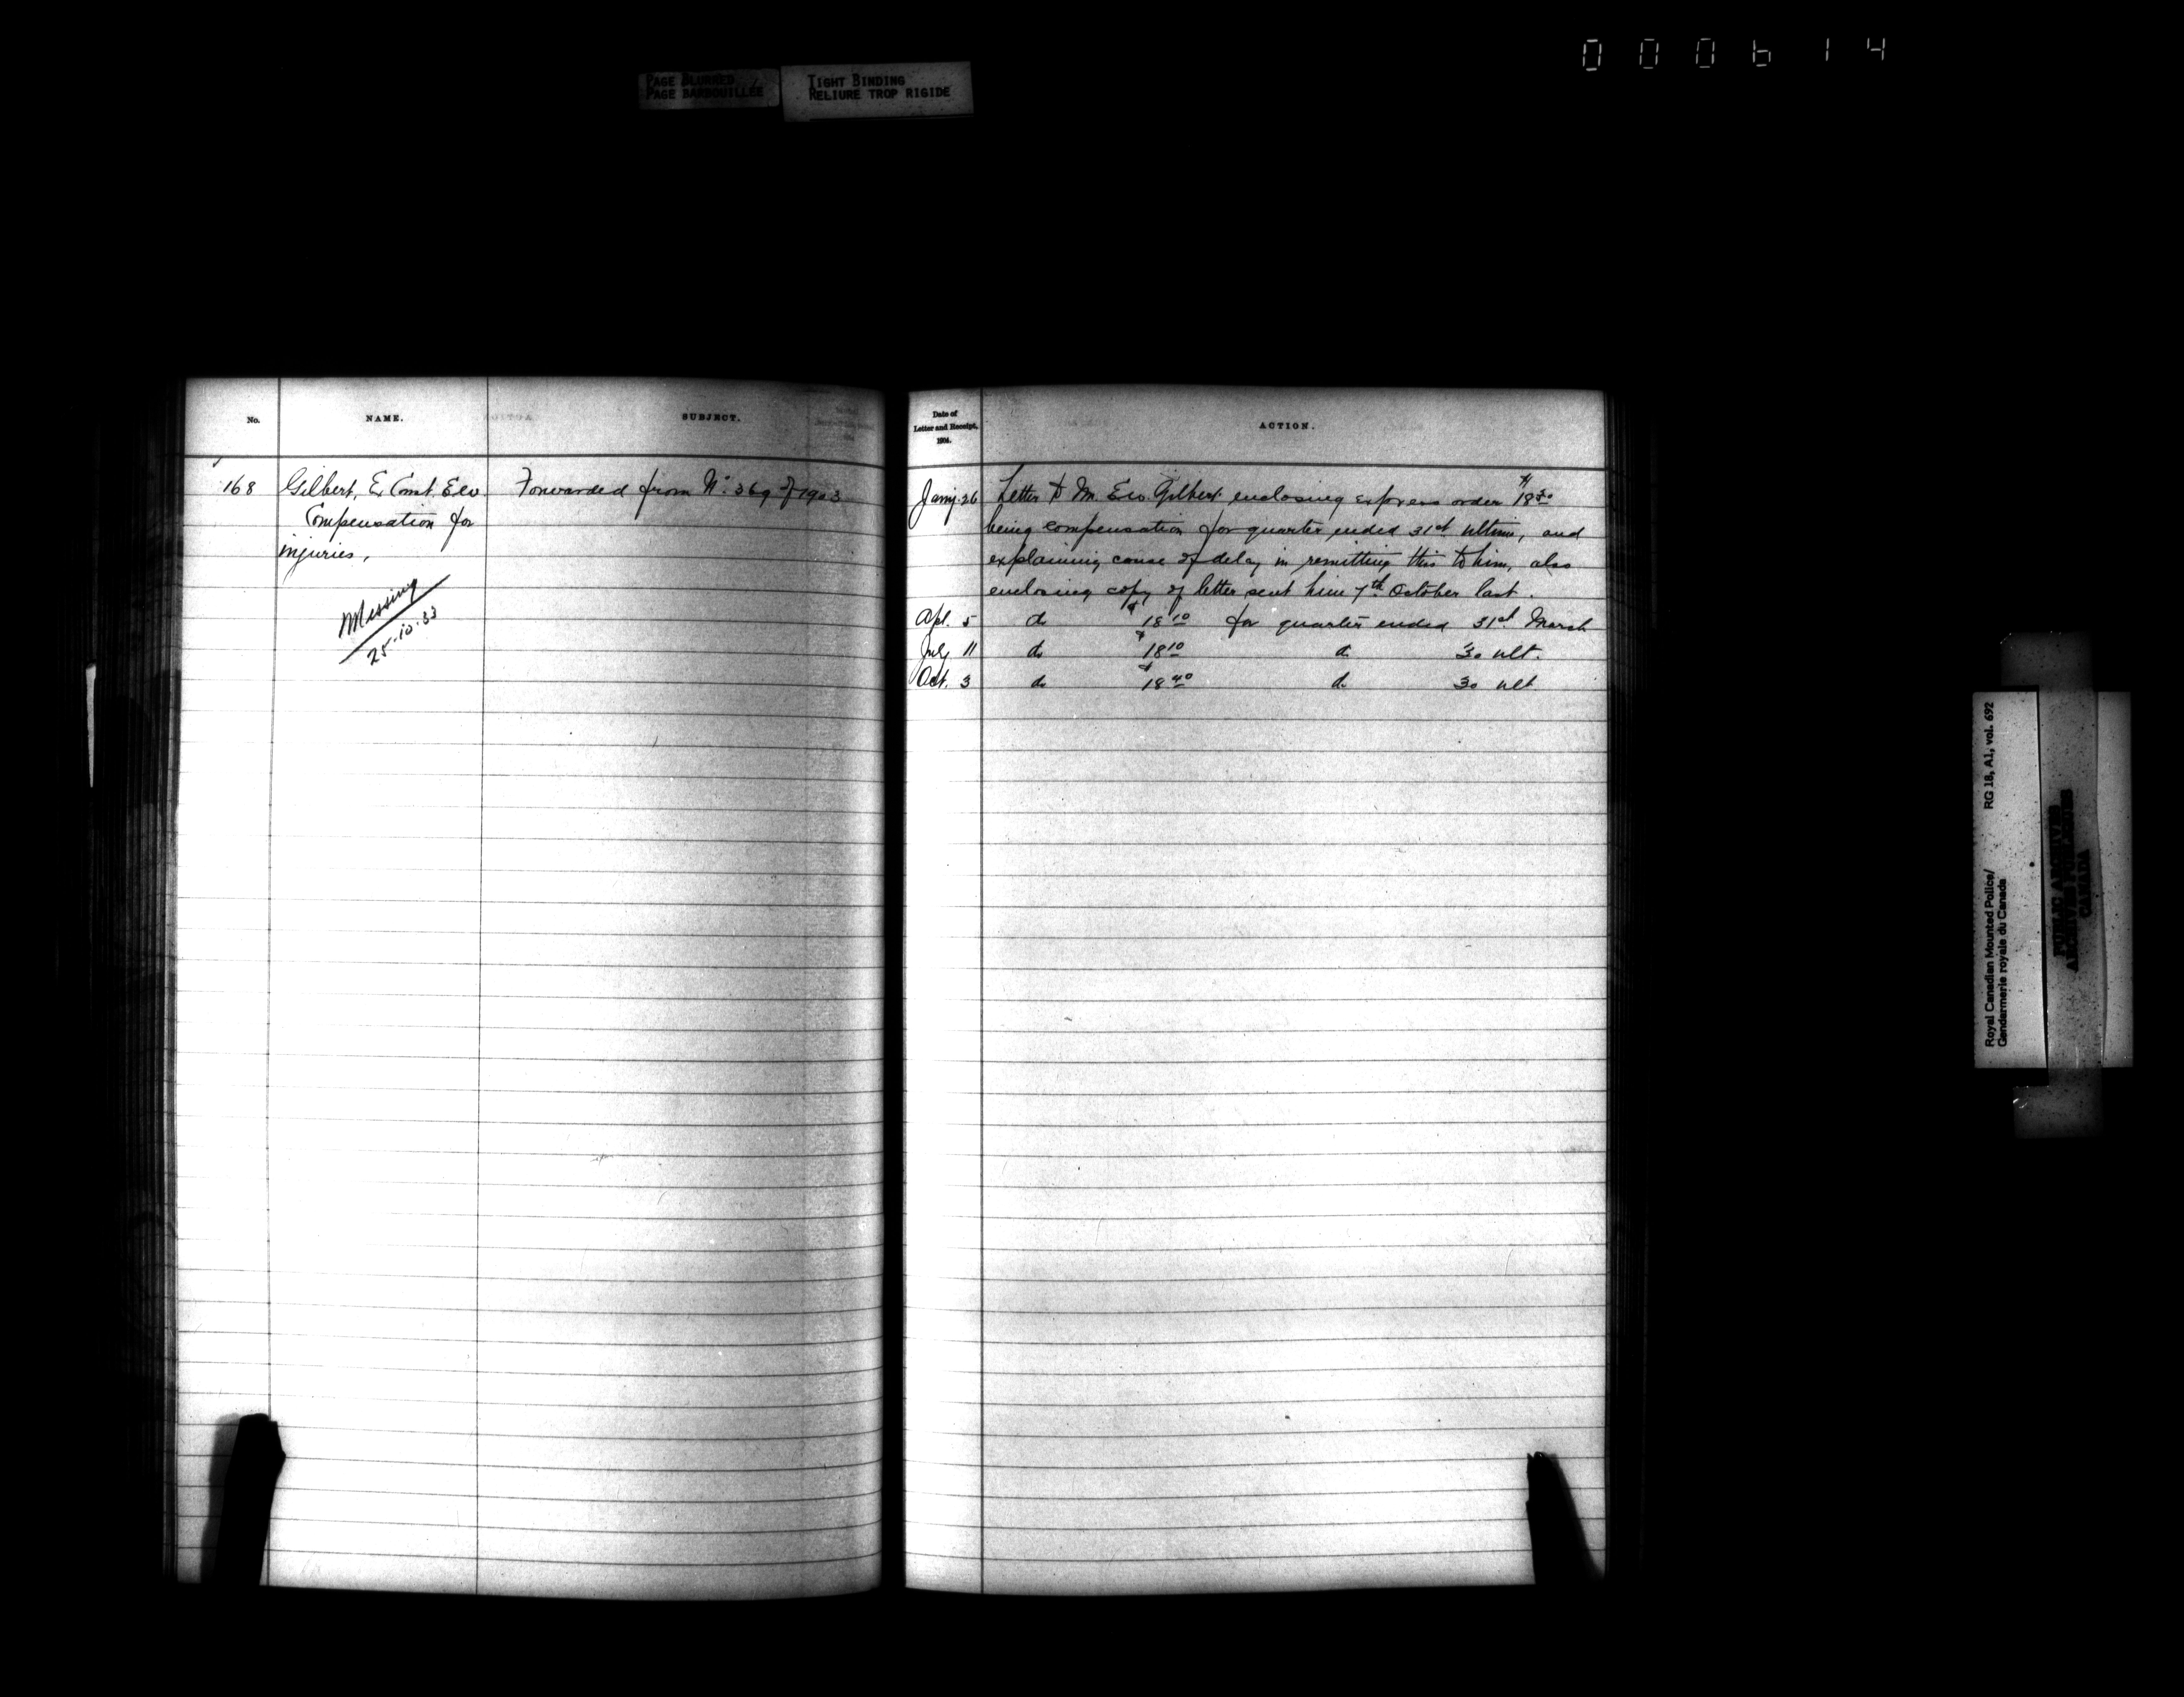 000614
PAGE BLURRED
PAGE BARBOUILLÉE
TIGHT BINDING
RELIURE TROP RIGIDE
No.
NAME.
SUBJECT.
168
Gilbert, Ex Const. Ew.
Forwarded from No. 369 of 1903
Compensation for
injuries,
Missing
25-10-33
Date of
Letter and Receipt,
1904.
ACTION.
Jany. 26
Letter to Mr. Ew. Gilbert enclosing express order
being compensation for quarter ended 31st ultimo, and
explaining cause of delay in remitting this to him, also
enclosing copy of letter sent him 7th October last.
Apl. 5 do $18 10 for quarter ended 31st March
July 11 do $18 10 do 30 ult.
Oct. 3 do $18 40 do 30 ult
Royal Canadian Mounted Police/
Gendarmerie royale du Canada
RG 18, A1, vol. 692
PUBLIC ARCHIVES
ARCHIVES PUBLIQUES
CANADA